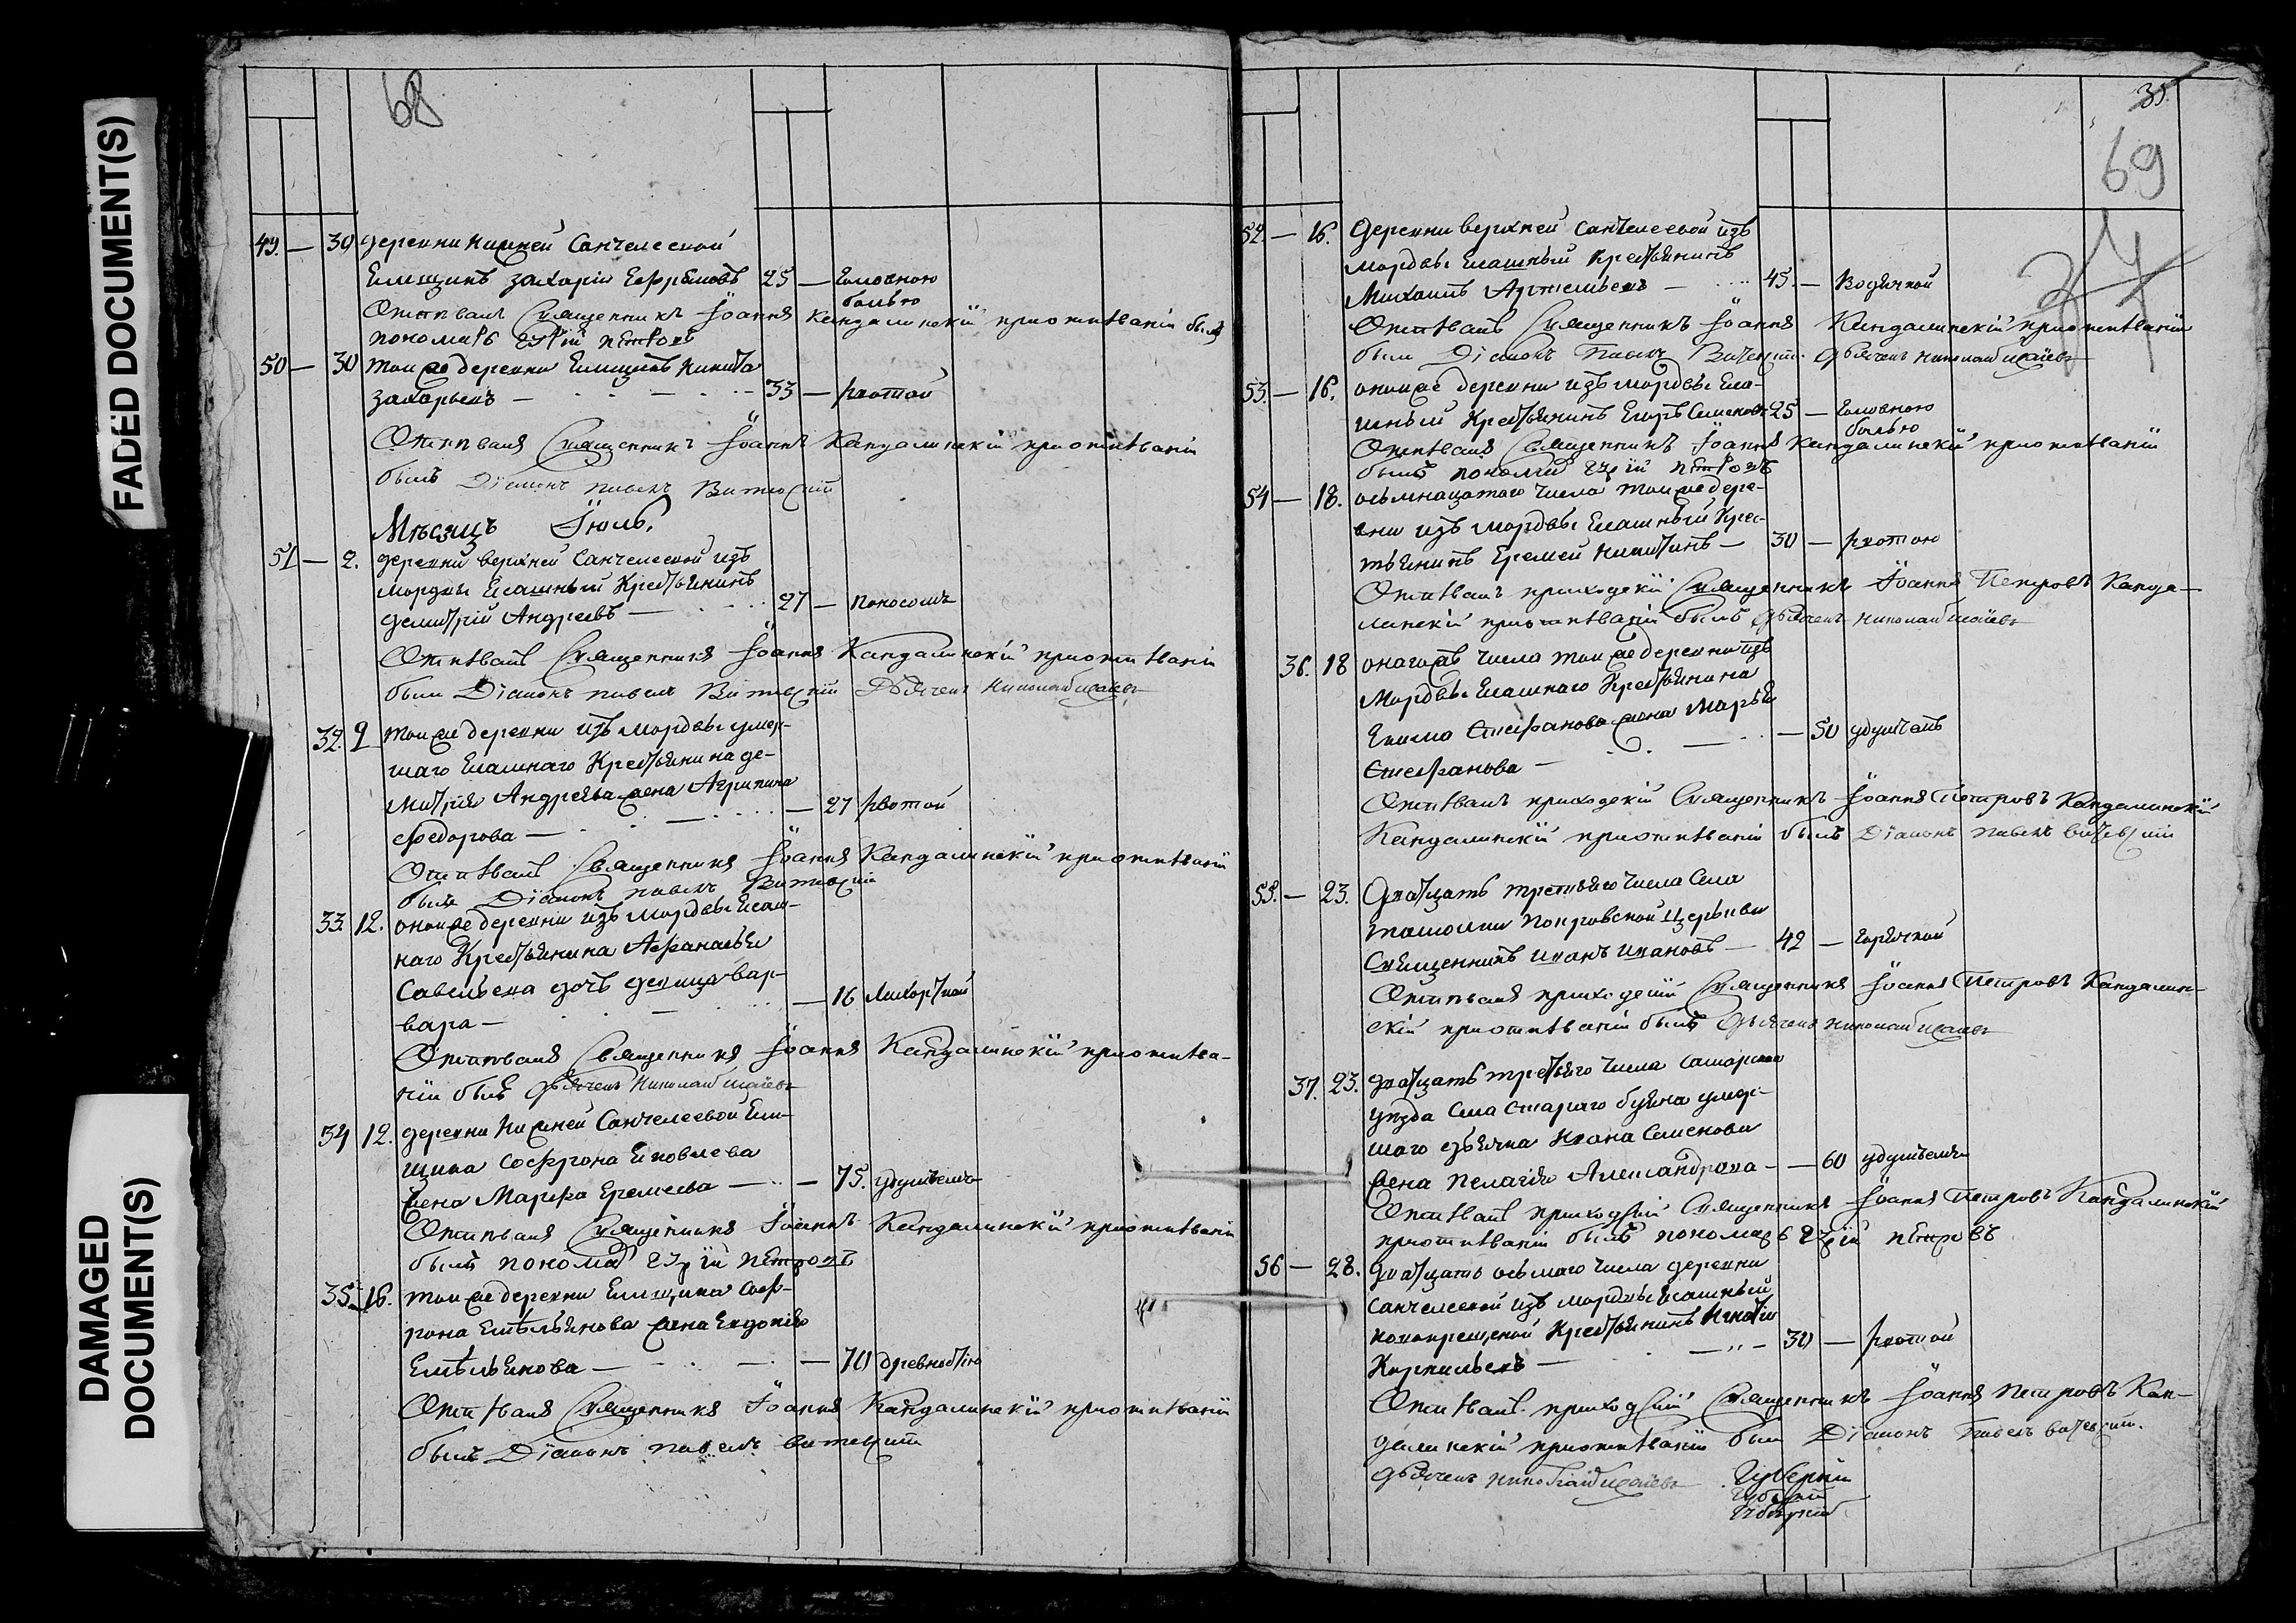 FADED DOCUMENT(S)
DAMAGED
DOCUMENT(S)
68
49. — 30 деревни нижней Санчелеевой
Ямщикъ Захарiй Ефремовъ 25 — головною
болью
Отпѣвалъ Священникъ Iоаннъ Кандалинскiй приотпѣванiи былъ
пономарь Петровъ
50 — 30 тойже деревни Ямщикъ Никита
Захарьевъ — 33 — рвотой
Отпѣвалъ Священникъ Iоаннъ Кандалинскiй приотпѣванiи
былъ Дiаконъ Павелъ
Мѣсяцъ Iюль.
51 — 2. деревни верхней Санчелеевой изъ
мордвы Ясашный Крестьянинъ
Димитрiй Андреевъ — 27 — поносомъ
Отпѣвалъ Священникъ Iоаннъ Кандалинскiй приотпѣванiи
были Дiаконъ Павелъ Дьячекъ Николай Исаiевъ
32. 9 тойже деревни изъ мордвы умер-
шаго Ясашнаго Крестьянина Де-
митрiя Андреева жена Агрипина
Федорова — — 27 рвотой
Отпѣвалъ Священникъ Iоаннъ Кандалинскiй приотпѣванiи
былъ Дiаконъ Павелъ
33. 12. онойже деревни изъ мордвы Ясаш-
наго Крестьянина Афанасья
Савельева дочь девица Вар-
вара — — 16 лихораткой
Отпѣвалъ Священникъ Iоаннъ Кандалинскiй приотпѣва-
нiи былъ Дьячекъ Николай Исаiевъ
34 12. деревни Нижней Санчелеевой Ям-
щика Софрона Яковлева
жена Марфа Еремеева — — 75. удушьемъ
Отпѣвалъ Священникъ Iоаннъ Кандалинскiй приотпѣванiи
былъ пономарь Петровъ
35 16. тойже деревни Ямщика Соф-
рона Емельянова жена Евдокiя
Емельянова — — 70 древностiю
Отпѣвалъ Священникъ Iоаннъ Кандалинскiй приотпѣванiи
былъ Дiаконъ Павелъ
35
69
52. — 16. деревни верхней Санчелеевой изъ
мордвы Ясашный Крестьянинъ
Михаилъ Артемьевъ — 45. — водяной
Отпѣвалъ Священникъ Iоаннъ Кандалинскiй приотпѣванiи
были Дiаконъ Павелъ Дьячекъ Николай Исаiевъ
53. — 16. онойже деревни изъ мордвы Яса-
шный Крестьянинъ Егоръ Семеновъ 25 — головною
болью
Отпѣвалъ Священникъ Iоаннъ Кандалинскiй приотпѣванiи
былъ пономарь Петровъ
54 — 18. осьмнацатаго числа тойже дере-
вни изъ мордвы Ясашный Крес-
тьянинъ Еремей Никитинъ — 30 — рвотою
Отпѣвалъ приходскiй Священникъ Iоаннъ Петровъ Канда-
линскiй приотпѣванiи былъ Дьячекъ Николай Исаiевъ
36. 18 онагожъ числа тойже деревни изъ
Мордвы Ясашнаго Крестьянина
Якима Стефанова жена Марья
Стефанова — — 50 удушьемъ
Отпѣвалъ приходскiй Священникъ Iоаннъ Петровъ Кандалинскiй
Кандалинскiй приотпѣванiи былъ Дiаконъ Павелъ
55. — 23. Дватцать третьяго числа Села
Ташолки Покровской Церькви
Священникъ Иванъ Ивановъ — 42 — горячкой
Отпѣвалъ приходскiй Священникъ Iоаннъ Петровъ Кандалин-
скiй приотпѣванiи былъ Дьячекъ Николай Исаiевъ
37. 23. дватцать третьяго числа Самарскаго
уезда Села Стараго Буяна умер-
шаго дьячка Ивана Семенова
жена Пелагiя Александрова — — 60 удушьемъ
Отпѣвалъ приходскiй Священникъ Iоаннъ Петровъ Кандалинскiй
приотпѣванiи былъ пономарь Петровъ
56 — 28. дватцать осьмаго числа деревни
Санчелеевой изъ мордвы Ясашный
новокрещеной Крестьянинъ Игнатiй
Корнильевъ — 30 — рвотой
Отпѣвалъ приходскiй Священникъ Iоаннъ Петровъ Кан-
далинскiй приотпѣванiи были Дiаконъ Павелъ
дьячекъ Николай Исаiевъ